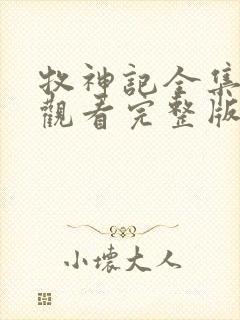 牧神記全集
觀看完整版
小壞大人